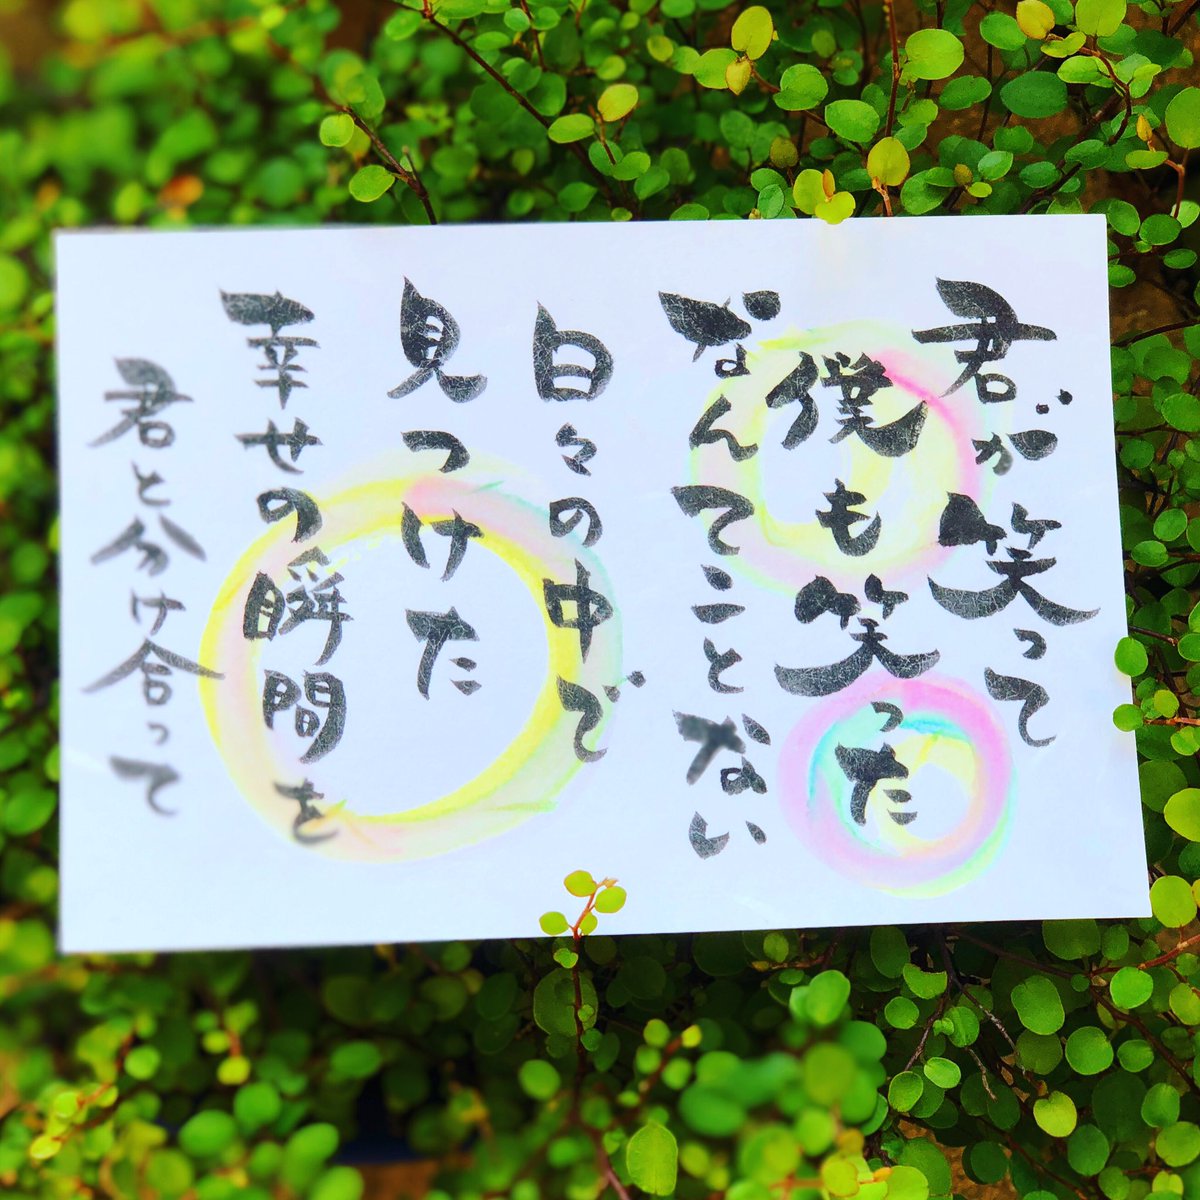 君が笑って
僕も笑った
なんてことない
日々の中で
見つけた
幸せの瞬間を
君と分け合って